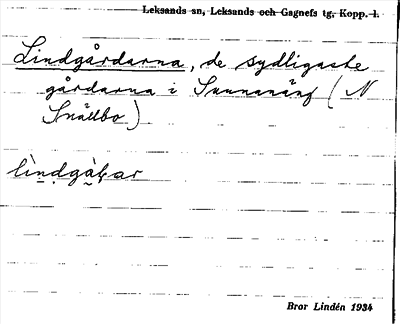 Leksands sn, Leksands och Gagnefs tg, Kopp. l.
Lindgårdarna, de sydligaste
gårdarna i Sunnanäng (N
Snällbo)
lìndgàḳar
Bror Lindén 1934